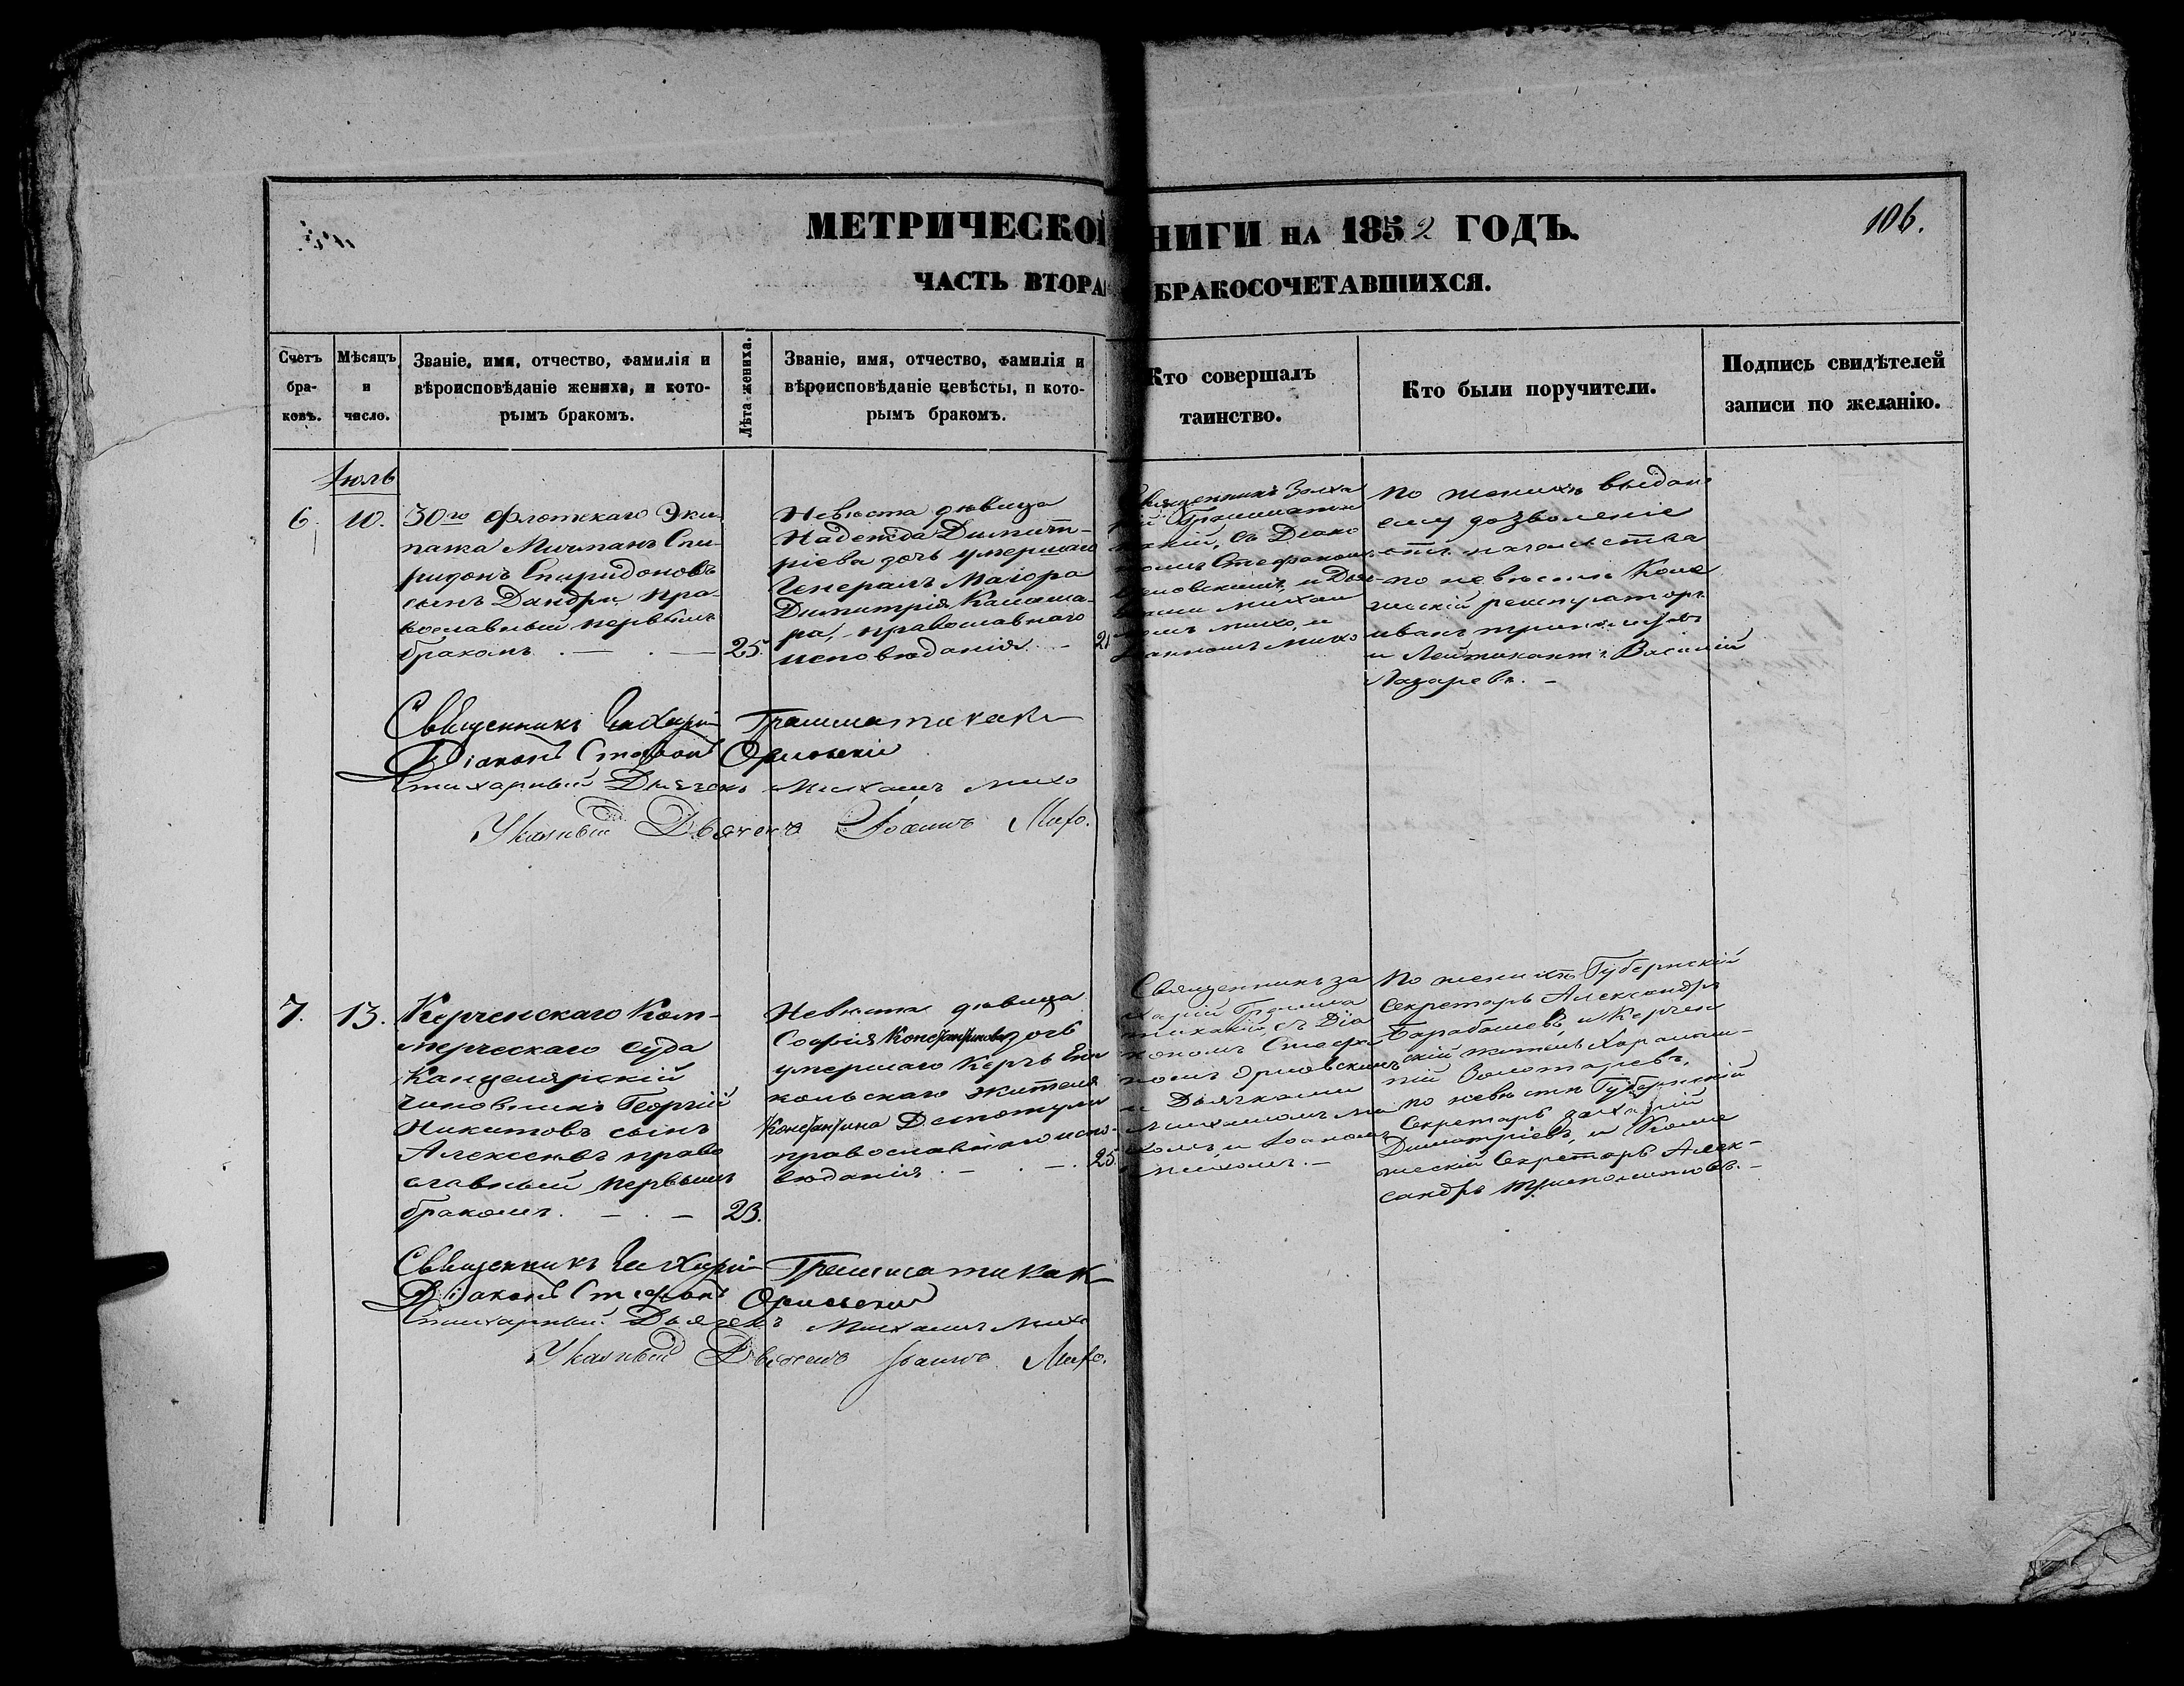 106.
МЕТРИЧЕСКОЙ НИГИ НА 1852 ГОДЪ.
ЧАСТЬ ВТОРАЯ БРАКОСОЧЕТАВШИХСЯ.
Счетъ
бра-
ковъ.
Мѣсяцъ
и
число.
Званіе, имя, отчество, фамилія и
вѣроисповѣданіе жениха, и кото-
рымъ бракомъ.
Лѣта жениха.
Званіе, имя, отчество, фамилія и
вѣроисповѣданіе невѣсты, и кото-
рымъ бракомъ.
Кто совершалъ
таинство.
Кто были поручители.
Подпись свидѣтелей
записи по желанію.
Іюль
6. 10.
30го Флотскаго Эки
пажа Мичманъ Спи-
ридонъ Спиридоновъ
сынъ Дандри, пра-
вославный первымъ
бракомъ. — . — 25.
Невѣста дѣвица
Надежда Димит-
ріева дочь умершаго
Генералъ Маіора
Димитрія
православнаго
исповѣданія. — 21
Священникъ Заха
рій Грамматика
кій, съ Діако
номъ Стефаномъ
Орловскимъ и Дья-
чками Михаи
ломъ Михо, и
Іоанномъ Михо
По женихѣ выдано
ему дозволеніе
отъ начальства
по невѣстѣ Колле
жскій регистраторъ
Иванъ
и Лейтенантъ Василій
Лазаревъ. —
Священникъ Захарій Грамматикаки
Діаконъ Стефанъ Орловскій
Стихарный Дьячекъ Михаилъ Михо
Указный Дьячекъ Іоаннъ Михо.
7. 13.
Керченскаго Ком-
мерческаго Суда
Канцелярскій
чиновникъ Георгій
Никитовъ сынъ
Алексѣевъ право
славный первымъ
бракомъ. — . — 23.
Невѣста дѣвица
Софія Константинова дочь
умершаго Керчь Ени
кольскаго жителя
Константина
православнаго испо-
вѣданія. — . — . 25
Священникъ За
харій Грамма
тикакій, съ Діа
кономъ Стефа
номъ Орловскимъ
и Дьячками
Михаиломъ Ми
хомъ, и Іоанномъ
Михомъ. —
По женихѣ Губернскій
Секретарь Александръ
Барабашевъ, и Керчен
скій житель Харалам-
пій Золотаревъ,
по невѣстѣ Губернскій
Секретарь Захарій
Димитріевъ, и Колле
жскій Секретарь Алек-
сандръ
Священникъ Захарій Грамматикаки
Діаконъ Стефанъ Орловскій
Стихарный Дьячекъ Михаилъ Михо
Указный Дьячекъ Іоаннъ Михо.